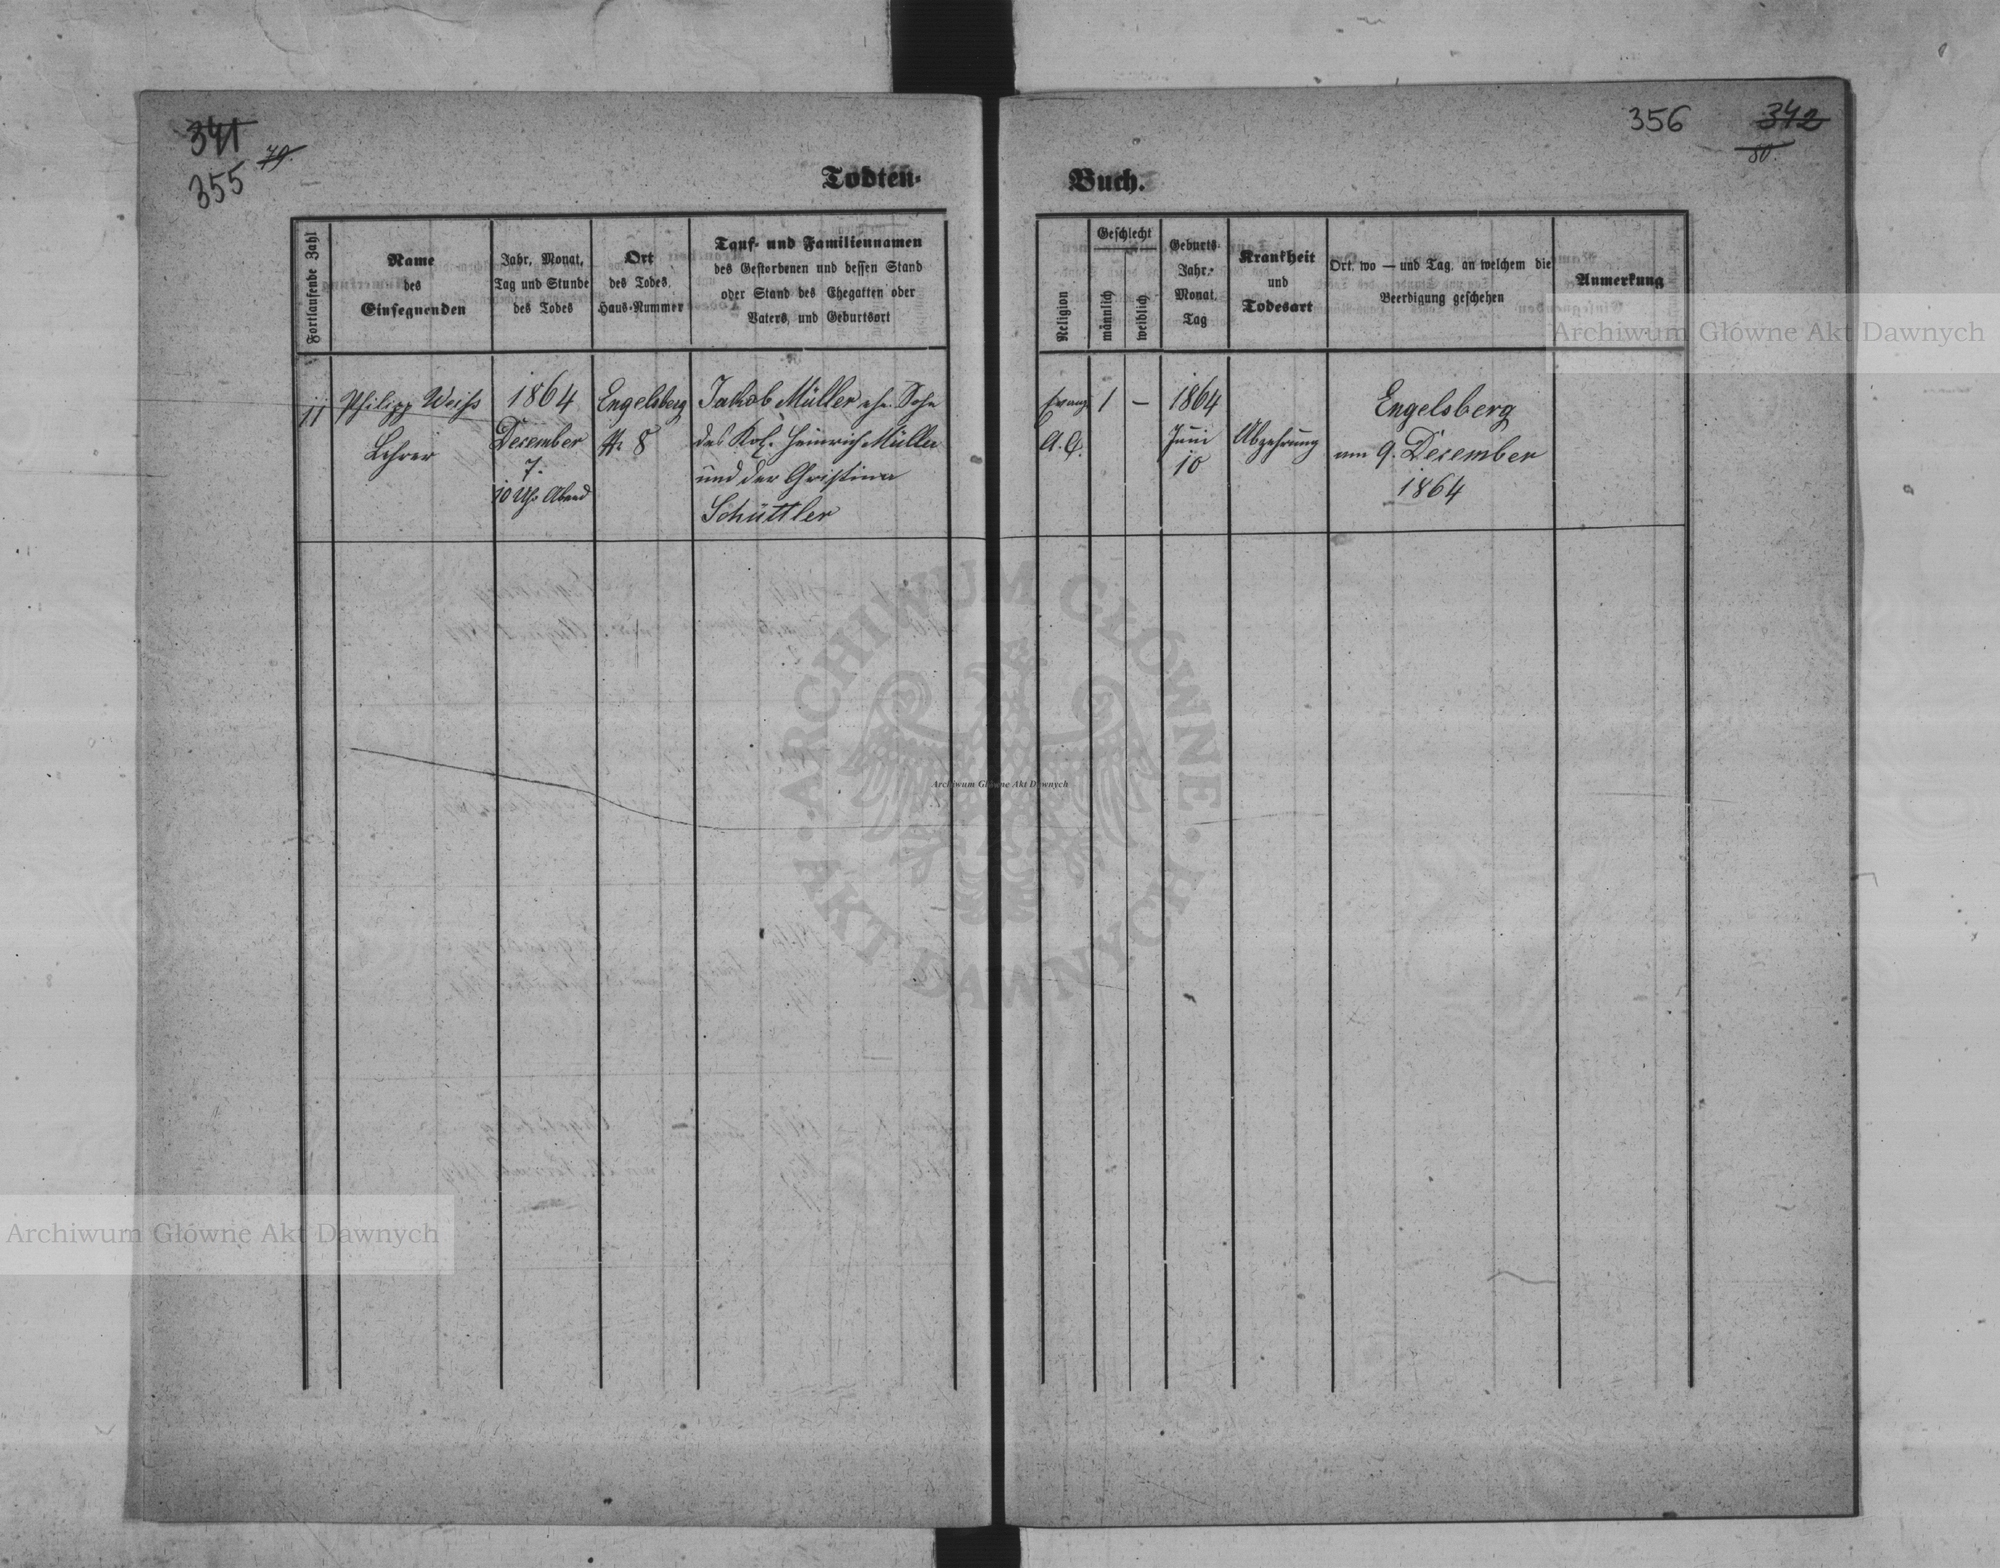 341
355
79.
356
342
80.
Todten-
Buch.
Fortlaufende Zahl
Name
des
Einsegnenden
Jahr, Monat,
Tag und Stunde
des Todes
Ort
des Todes,
Haus-Nummer
Tauf- und Familiennamen
des Gestorbenen und dessen Stand
oder Stand des Ehegatten oder
Vaters, und Geburtsort
Religion
Geschlecht
männlich
weiblich
Geburts-
Jahr,
Monat,
Tag
Krankheit
und
Todesart
Ort, wo — und Tag, an welchem die
Beerdigung geschehen
Anmerkung
11
Philipp Weiss
Lehrer
1864
December
7.
10 Uhr Abend
Engelsberg
№ 8
Jakob Müller eh. Sohn
des Kol. Heinrich Müller
und der Christina
Schüttler
Evang.
A. C.
1
—
1864
Juni
10
Abzehrung
Engelsberg
am 9. December
1864
Archiwum Główne Akt Dawnych
ARCHIWUM GŁÓWNE
AKT DAWNYCH
Archiwum Główne Akt Dawnych
Archiwum Główne Akt Dawnych